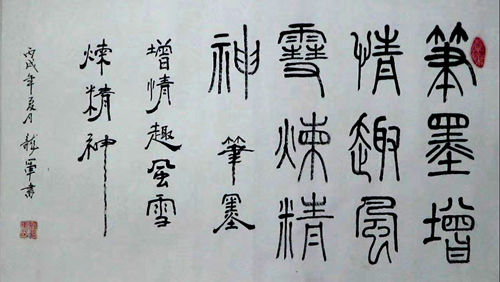 筆墨增
情趣風
雪煉精
神 筆墨
增情趣風雪
煉精神
丙戌年夏月